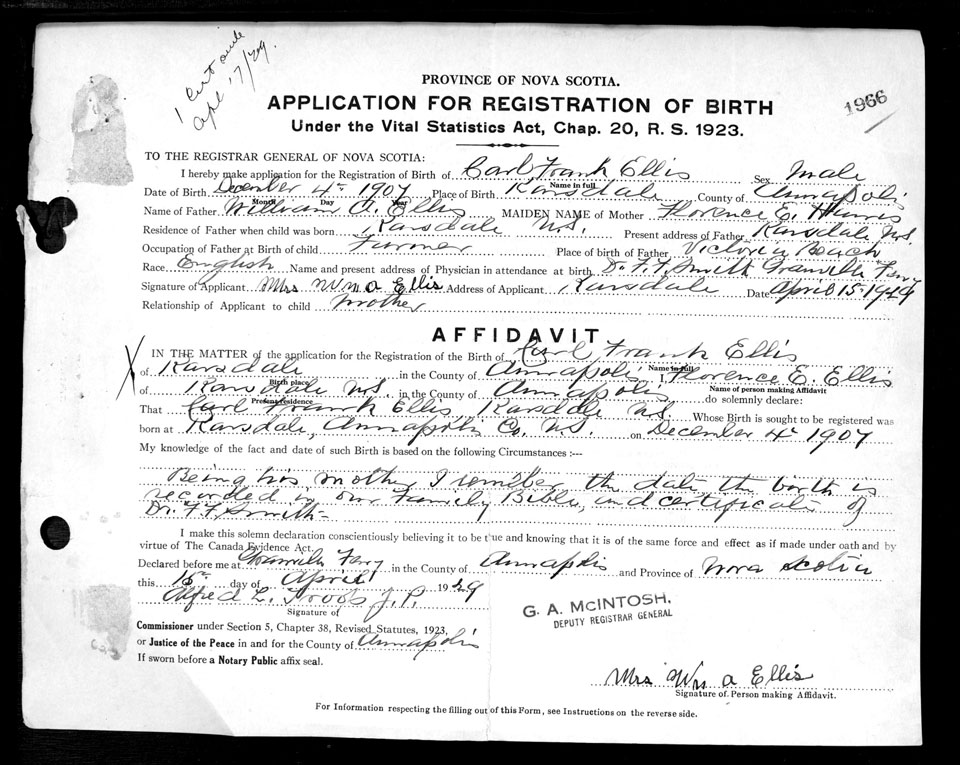 1 Cert aide
Apl 17/29.
PROVINCE OF NOVA SCOTIA.
APPLICATION FOR REGISTRATION OF BIRTH
Under the Vital Statistics Act, Chap. 20, R. S. 1923.
1966
TO THE REGISTRAR GENERAL OF NOVA SCOTIA:
I hereby make application for the Registration of Birth of Carl Frank Ellis Sex Male
Name in full
Date of Birth December 4th 1907 Place of Birth Karsdale County of Annapolis
Month Day Year
Name of Father William A. Ellis MAIDEN NAME of Mother Florence E. Harris
Residence of Father when child was born Karsdale N.S. Present address of Father Karsdale N.S.
Occupation of Father at Birth of child Farmer Place of birth of Father Victoria Beach
Race English Name and present address of Physician in attendance at birth Dr. F. F. Smith Granville Ferry
Signature of Applicant Mrs Wm a Ellis Address of Applicant Karsdale Date April 15th 1929
Relationship of Applicant to child Mother
AFFIDAVIT
X IN THE MATTER of the application for the Registration of the Birth of Carl Frank Ellis
Name in full
of Karsdale in the County of Annapolis I, Florence E. Ellis
Birth place Name of person making Affidavit
of Karsdale N.S. in the County of Annapolis do solemnly declare:
Present residence
That Carl Frank Ellis Karsdale N.S. Whose Birth is sought to be registered was
born at Karsdale, Annapolis Co. N.S. on December 4th 1907
My knowledge of the fact and date of such Birth is based on the following Circumstances :—
Being his mother I remember the date the birth is
recorded in our Family Bible, and certificate of
Dr. F. F. Smith—
I make this solemn declaration conscientiously believing it to be true and knowing that it is of the same force and effect as if made under oath and by
virtue of The Canada Evidence Act.
Declared before me at Granville Ferry in the County of Annapolis and Province of Nova Scotia
this 15th day of April 1929
Alfred L. Troop J.P.
Signature of
G. A. McINTOSH,
DEPUTY REGISTRAR GENERAL
Commissioner under Section 5, Chapter 38, Revised Statutes, 1923,
or Justice of the Peace in and for the County of Annapolis
If sworn before a Notary Public affix seal.
Mrs Wm a Ellis
Signature of Person making Affidavit.
For Information respecting the filling out of this Form, see Instructions on the reverse side.